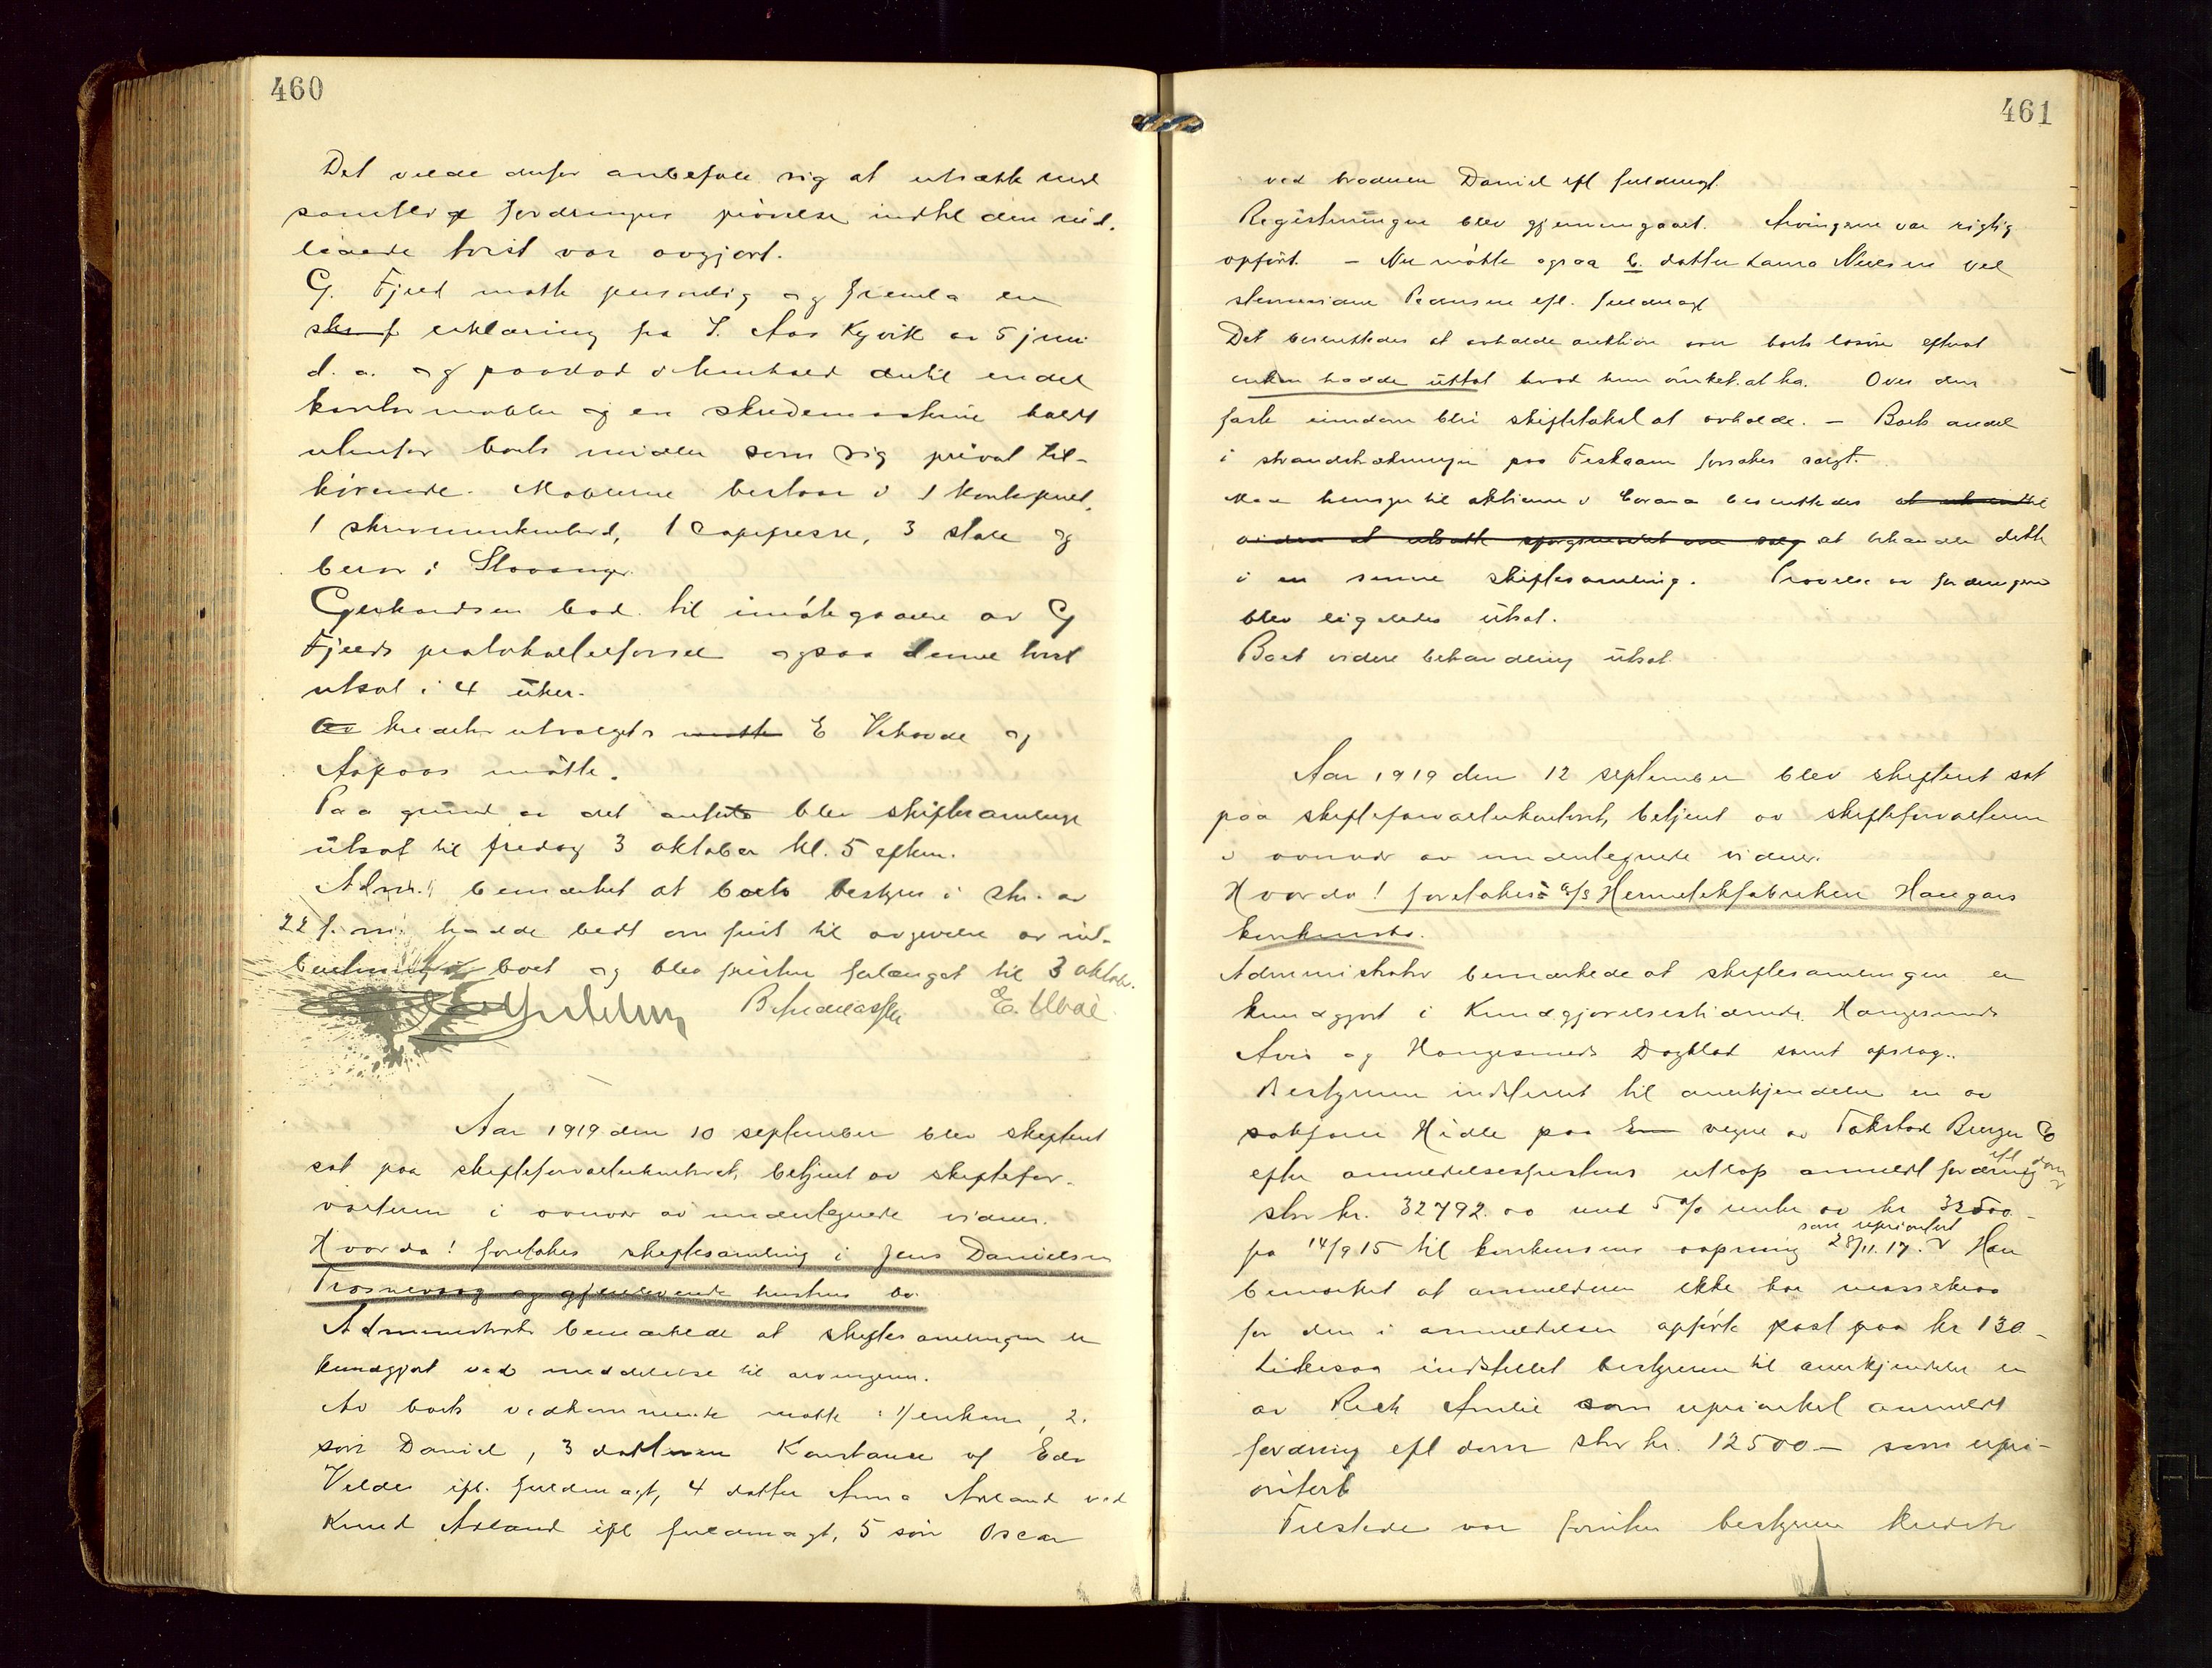 460
Det vilde derfor anbefale sig at utsætte med
samtlige fordringers prövelse indtil den ved-
tvist var avgjort.
G. Fjeld mötte personlig og fremla en
erklæring fra S. Aas Kyvik av 5 juni
d. a. og paastod i henhold dertil endel
kontormöbler og en skrivemaskine holdt
utenfor boets midler som sig privat til-
hörende. Möblerne bestaar i 1 kontorpult,
1 skrivemaskinbord, 1 copipresse, 3 stole og
beror i Stavanger.
Gerhardsen bad til imötegaaelse av G
Fjelds protokoltilförsel ogsaa denne tvist
utsat i 4 uker.
kreditorutvalget E Vihovde og
Aspaas mötte.
Paa grund av det anförte blev skiftesamlingen
utsat til fredag 3 oktober kl. 5 efterm.
Adm. bemærket at boets bestyrer i skr. av
22 f. m. hadde bedt om frist til avgivelse av ind-
beretning i boet og blev fristen forlænget til 3 oktob.
Aar 1919 den 10 september blev skifteret
sat paa skifteforvalterkontoret, betjent av skiftefor-
valteren i overvær av undertegnede vidner.
Hvorda! foretokes skiftesamling i Jens Danielsen
og gjenlevende hustrus bo.
Administrator bemerkede at skiftesamlingen er
kundgjort ved meddelelse til arvingerne.
Av boets vedkommende mötte: 1/ enken, 2.
sön Daniel, 3 datteren Konstanse v/ Edv
Velde ifl. fuldmagt, 4 datter Anna Axland ved
Knud Axland ifl fuldmagt, 5 sön Oscar
461
ved broderen Daniel ifl fuldmagt.
Registreringen blev gjennemgaaet. Arvingerne var rigtig
opfört. – Nu mötte ogsaa 6. datter Laura Nielsen ved
Pedersen ifl. fuldmagt
Det besluttedes at avholde auktion over boets lösöre efterat
enken hadde uttat hvad hun önsket at ha. Over den
faste eiendom blir skiftetakst at avholde. – Boets andel
i paa Feskaaen forsökes solgt.
Med hensyn til aktierne i Corona besluttedes at
at utsætte spørgsmaalet om salg at behandle dette
i en senere skiftesamling. Prövelse av fordringene
blev ligeledes utsat.
Boet videre behandling utsat.
Aar 1919 den 12 september blev skifteret sat
paa skifteforvalterkontoret, betjent av skifteforvalteren
i overvær av undertegnede vidner.
Hvorda! foretokes: a/s Hermetikfabriken Haugars
konkursbo.
Administrator bemærkede at skiftesamlingen er
kundgjort i Kundgjörelsestidende, Haugesunds
Avis og Haugesunds Dagblad samt opslag.
Bestyreren indstillet til anerkjendelse en av
sakförer Hidle paa vegne av Takstad Burger Co
efter anmeldelsesfristens utlöp anmeldt fordring ifl dom
stor kr. 32792.00 med 5 % rente av kr 32500 –
fra 14/9 15 til konkursens aapning 28/11.17. som uprioritert Han
bemærket at anmelderen ikke har massekrav
for den i anmeldelsen opförte post paa kr 130 –
Likesaa indstillet bestyreren til anerkjendelse en
av Rich Amlie som uprioritert anmeldt
fordring ifl dom stor kr. 12500 – som upri-
oritert
Tilstede var foruten bestyreren kreditor